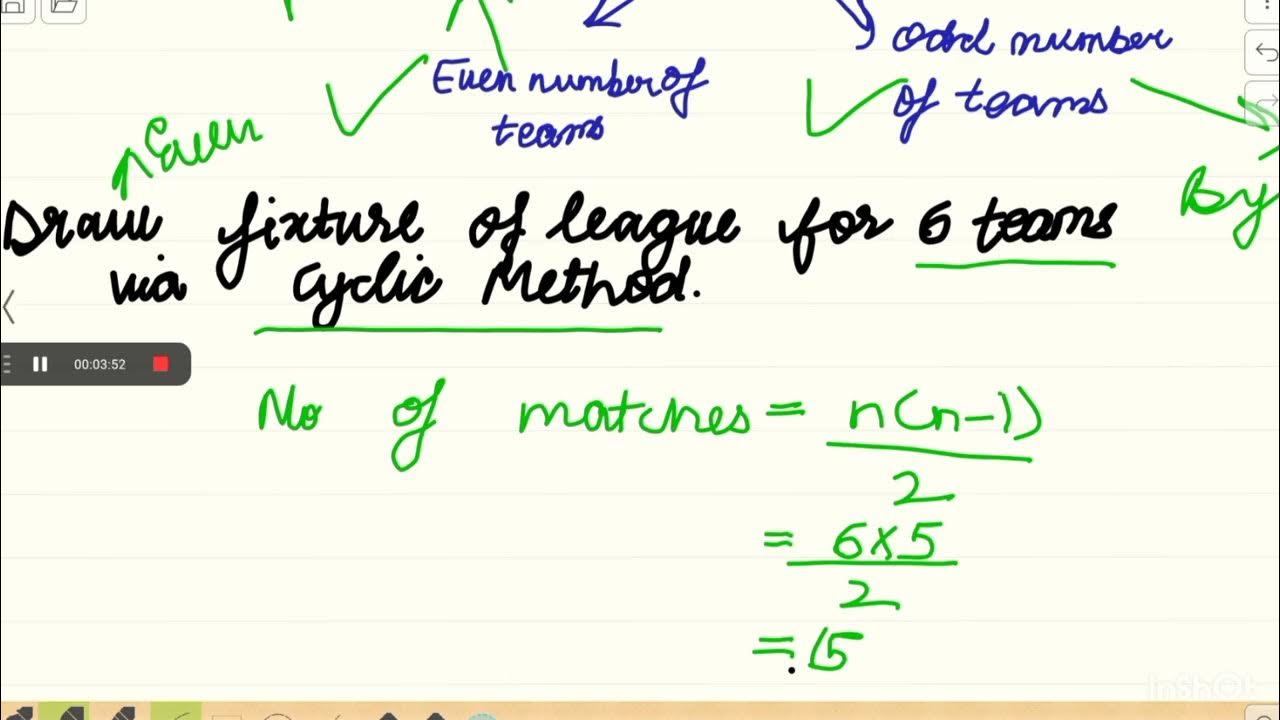 Odd number
Even number of
of teams
teams
Even
By
Draw fixture of league for 6 teams
via Cyclic Method.
00:03:52
No of matches = n(n-1)
2
= 6x5
2
= 15
InShOt